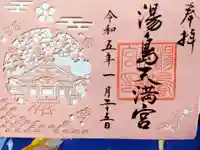 奉拝
湯島天満宮
令和五年一月二十五日